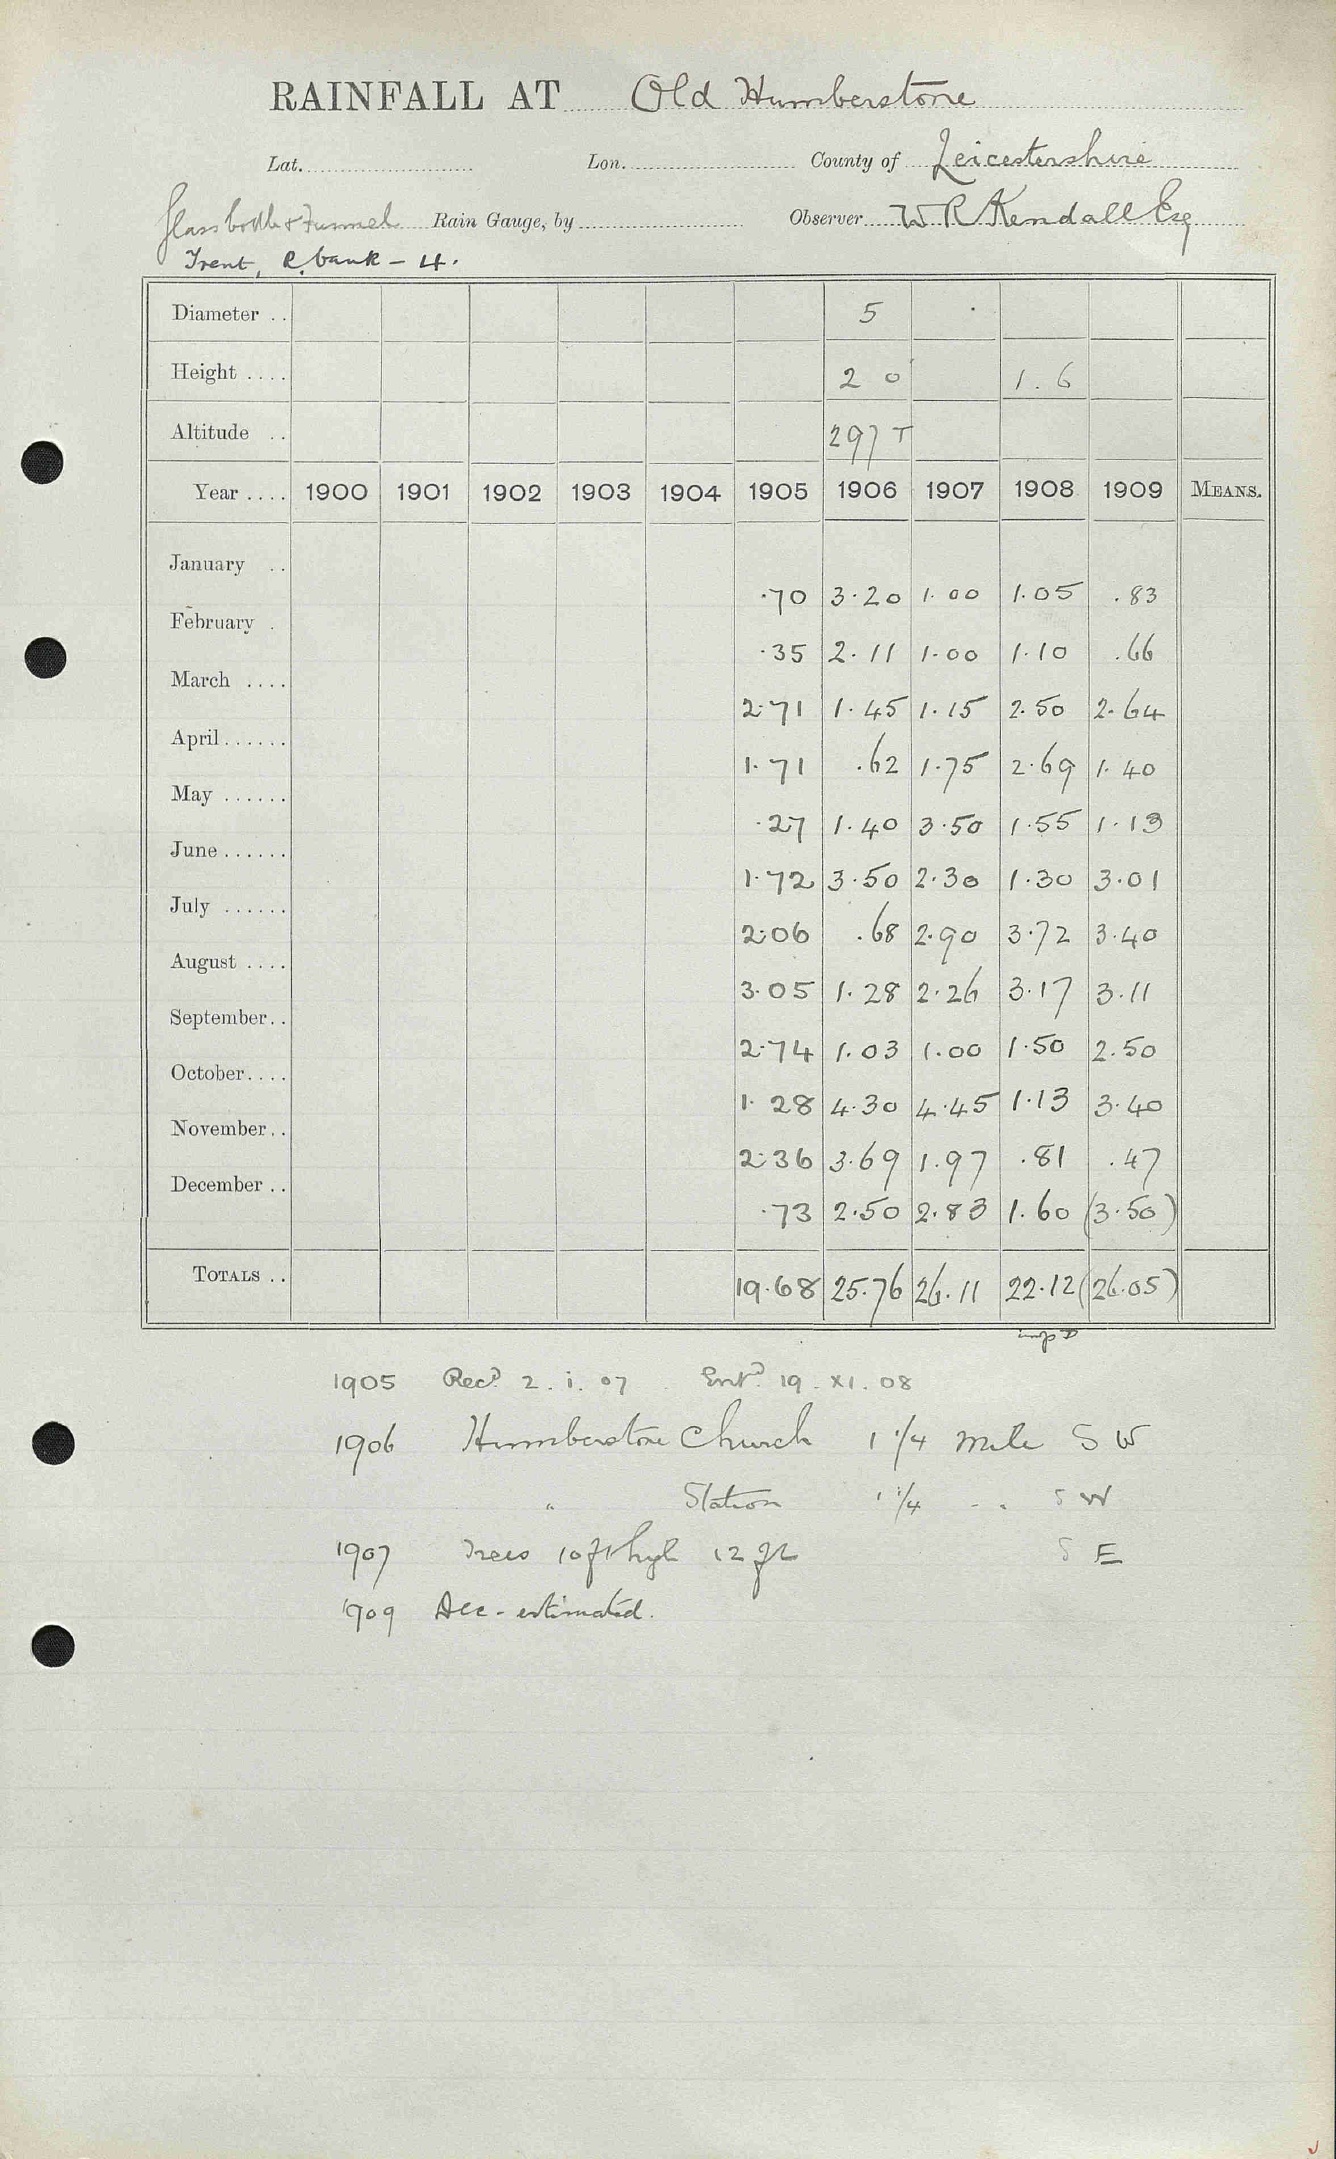 RAINFALL AT Old Humberstone
Lat. Lon. County of Leicestershire
Glass bottle & Funnel Rain Gauge, by Observer W R Kendall Esq
Trent, R. bank - 4.
Diameter .. 5
Height .... 2 0 1. 6
Altitude .. 297 T
Year .... 1900 1901 1902 1903 1904 1905 1906 1907 1908 1909 MEANS.
January .. .70 3.20 1.00 1.05 .83
February . .35 2.11 1.00 1.10 .66
March .... 2.71 1.45 1.15 2.50 2.64
April...... 1.71 .62 1.75 2.69 1.40
May ...... .27 1.40 3.50 1.55 1.13
June...... 1.72 3.50 2.30 1.30 3.01
July ...... 2.06 .68 2.90 3.72 3.40
August .... 3.05 1.28 2.26 3.17 3.11
September.. 2.74 1.03 1.00 1.50 2.50
October.... 1.28 4.30 4.45 1.13 3.40
November.. 2.36 3.69 1.97 .81 .47
December .. .73 2.50 2.83 1.60 (3.50)
TOTALS .. 19.68 25.76 26.11 22.12 (26.05)
1905 Recd 2.i.07 Entd 19.XI.08
1906 Humberstone Church 1 1/4 mile S W
" Station 1 1/4 " " S W
1907 Trees 10 ft high 12 ft S E
1909 Dec - estimated.